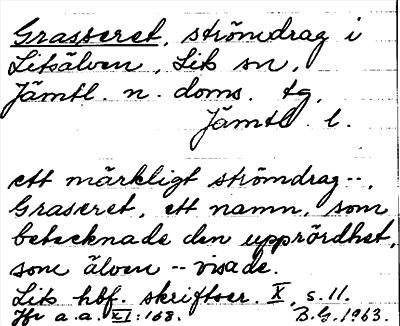 Grasseret, strömdrag i
Litsälven, Lits sn,
Jämtl. n. doms. tg,
Jämtl. l.
ett märkligt strömdrag --,
Graseret, ett namn, som
betecknade den upprördhet,
som älven -- visade.
Lits hbf. skriftser. X, s. 11.
Jfr a.a. XI: 168. B.G. 1963.